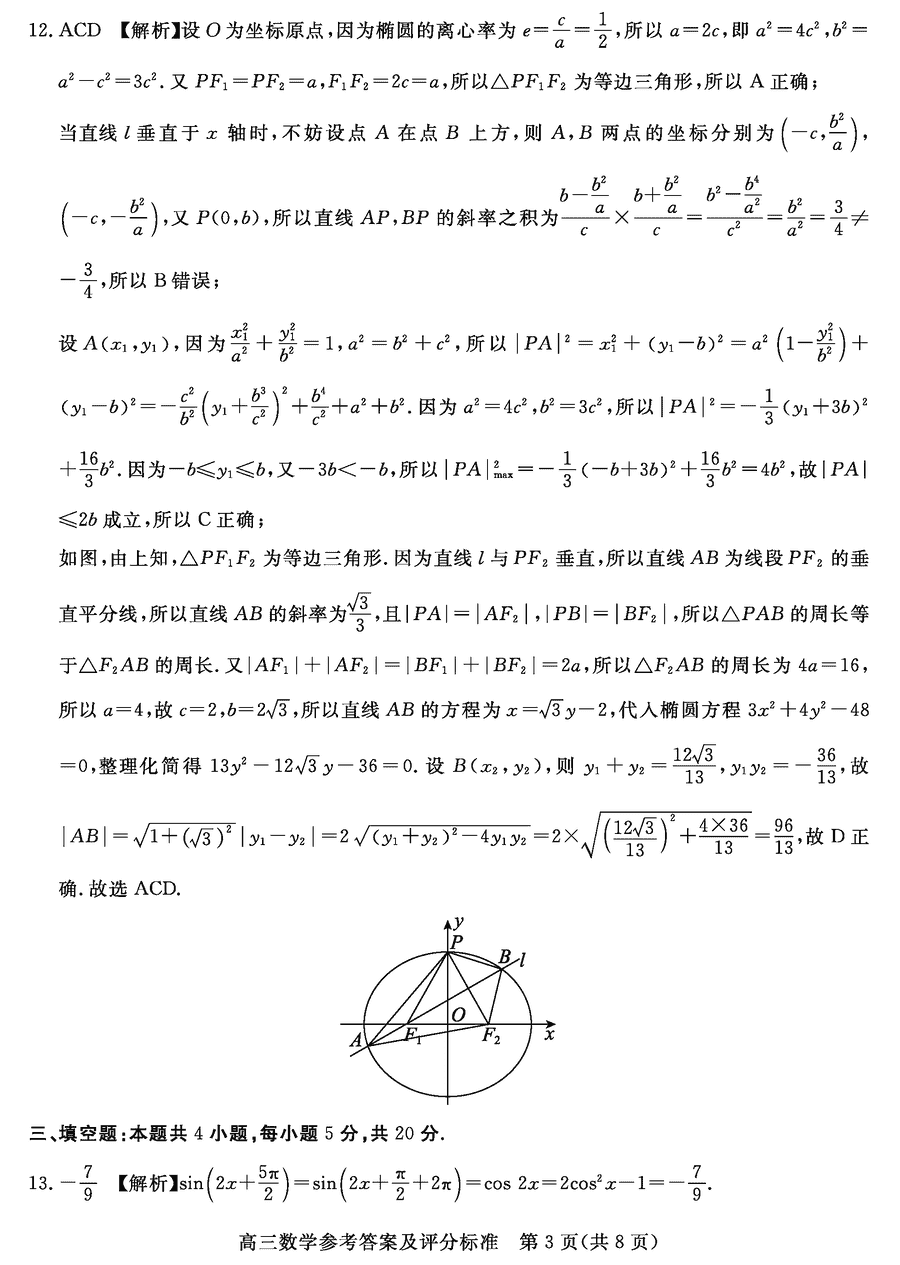 12. ACD 【解析】设 O 为坐标原点,因为椭圆的离心率为 e=c/a=1/2,所以 a=2c,即 a²=4c²,b²=
a²-c²=3c².又 PF₁=PF₂=a,F₁F₂=2c=a,所以△PF₁F₂ 为等边三角形,所以 A 正确;
当直线 l 垂直于 x 轴时,不妨设点 A 在点 B 上方,则 A,B 两点的坐标分别为 (-c,b²/a),
(-c,-b²/a),又 P(0,b),所以直线 AP,BP 的斜率之积为 (b-b²/a)/c×(b+b²/a)/c=(b²-b⁴/a²)/c²=b²/a²=3/4≠
-3/4,所以 B 错误;
设 A(x₁,y₁),因为 x₁²/a²+y₁²/b²=1,a²=b²+c²,所以|PA|²=x₁²+(y₁-b)²=a²(1-y₁²/b²)+
(y₁-b)²=-c²/b²(y₁+b³/c²)²+b⁴/c²+a²+b².因为 a²=4c²,b²=3c²,所以|PA|²=-1/3(y₁+3b)²
+16/3b².因为-b≤y₁≤b,又-3b<-b,所以|PA|²max=-1/3(-b+3b)²+16/3b²=4b²,故|PA|
≤2b 成立,所以 C 正确;
如图,由上知,△PF₁F₂ 为等边三角形.因为直线 l 与 PF₂ 垂直,所以直线 AB 为线段 PF₂ 的垂
直平分线,所以直线 AB 的斜率为√3/3,且|PA|=|AF₂|,|PB|=|BF₂|,所以△PAB 的周长等
于△F₂AB 的周长.又|AF₁|+|AF₂|=|BF₁|+|BF₂|=2a,所以△F₂AB 的周长为 4a=16,
所以 a=4,故 c=2,b=2√3,所以直线 AB 的方程为 x=√3y-2,代入椭圆方程 3x²+4y²-48
=0,整理化简得 13y²-12√3y-36=0.设 B(x₂,y₂),则 y₁+y₂=12√3/13,y₁y₂=-36/13,故
|AB|=√(1+(√3)²)|y₁-y₂|=2√((y₁+y₂)²-4y₁y₂)=2×√((12√3/13)²+4×36/13)=96/13,故 D 正
确.故选 ACD.
y
P
B
l
O
A
F₁
F₂
x
三、填空题:本题共 4 小题,每小题 5 分,共 20 分.
13. -7/9 【解析】sin(2x+5π/2)=sin(2x+π/2+2π)=cos 2x=2cos²x-1=-7/9.
高三数学参考答案及评分标准 第 3 页(共 8 页)